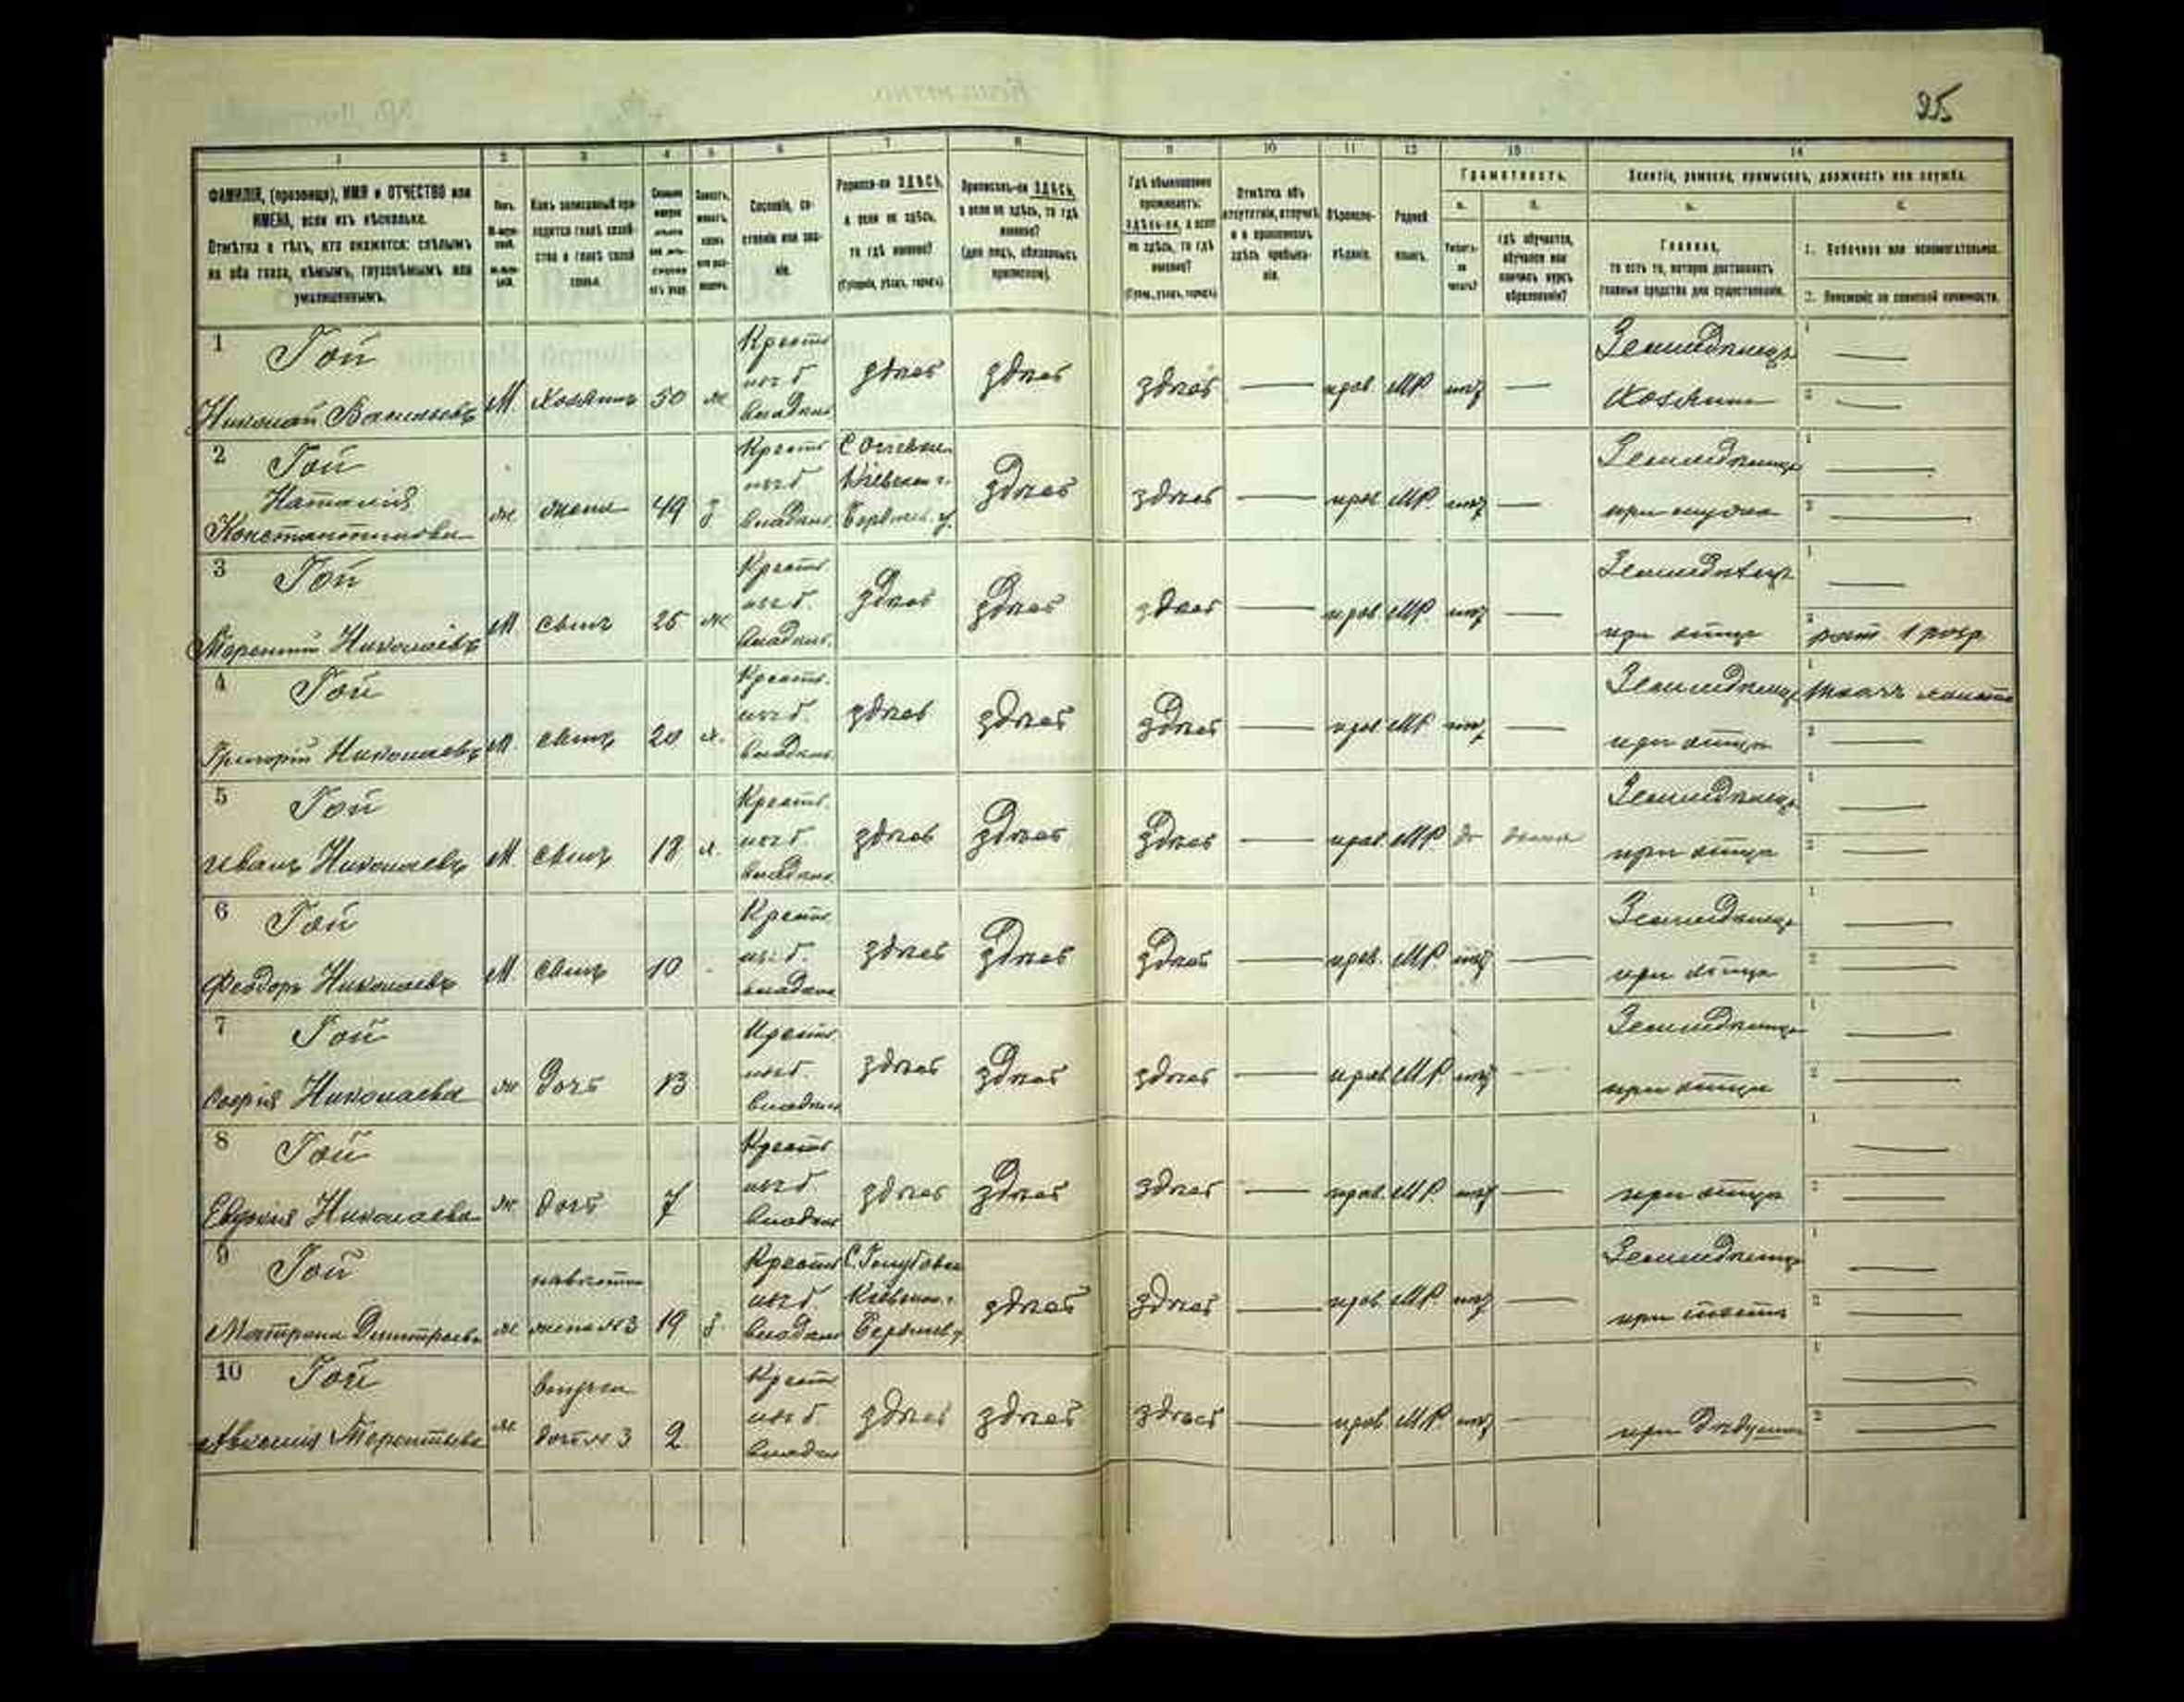 25
1 2 3 4 5 6 7 8 9 10 11 12 13 14
ФАМИЛІЯ, (прозвище), ИМЯ и ОТЧЕСТВО или ИМЕНА, если ихъ нѣсколько.
Отмѣтка о тѣхъ, кто окажется: слѣпымъ на оба глаза, нѣмымъ, глухонѣмымъ или умалишеннымъ.
Сословіе, состояніе или званіе.
Родился-ли ЗДѢСЬ, а если не здѣсь, то гдѣ именно?
(Губернія, уѣздъ, городъ).
Приписанъ-ли ЗДѢСЬ, а если не здѣсь, то гдѣ именно?
(для лицъ, обязанныхъ припискою).
Гдѣ обыкновенно проживаетъ: здѣсь-ли, а если не здѣсь, то гдѣ именно?
(Губ., уѣздъ, городъ).
Отмѣтка объ отсутствіи, отлучкѣ и о временномъ здѣсь пребываніи.
Вѣроисповѣданіе.
Родной языкъ.
Грамотность.
а. Умѣетъ-ли читать?
б. гдѣ обучается, обучался или кончилъ курсъ образованія?
Занятіе, ремесло, промыселъ, должность или служба.
а. Главное, то есть то, которое доставляетъ главныя средства для существованія.
б.
1. Побочное или вспомогательное.
2. Положеніе по воинской повинности.
1 Гой
Николай Васильевъ М хозяинъ 50 ж Крестн. изъ б. владѣл. здѣсь здѣсь здѣсь — прав. МР. нѣтъ — Земледѣлецъ хозяинъ 1 — 2 —
2 Гой
Наталія
Константинова ж жена 49 з Крестн. изъ б. владѣл. Кіевской г. Бердичев. у. здѣсь здѣсь — прав. МР. нѣтъ — Земледѣлецъ при мужѣ 1 — 2 —
3 Гой
Терентій Николаевъ М сынъ 25 ж Крестн. изъ б. владѣл. здѣсь здѣсь здѣсь — прав. МР. нѣтъ — Земледѣлецъ при отцѣ 1 — 2 рат. 1 разр.
4 Гой
Григорій Николаевъ М сынъ 20 х. Крестн. изъ б. владѣл. здѣсь здѣсь здѣсь — прав. МР. нѣтъ — Земледѣлецъ при отцѣ 1 ткачъ 2 —
5 Гой
Иванъ Николаевъ М сынъ 18 х. Крестн. изъ б. владѣл. здѣсь здѣсь здѣсь — прав. МР. да дома Земледѣлецъ при отцѣ 1 — 2 —
6 Гой
Феодоръ Николаевъ М сынъ 10 Крестн. изъ б. владѣл. здѣсь здѣсь здѣсь — прав. МР. нѣтъ — Земледѣлецъ при отцѣ 1 — 2 —
7 Гой
Софія Николаева ж дочь 13 Крестн. изъ б. владѣл. здѣсь здѣсь здѣсь — прав. МР. нѣтъ — Земледѣлецъ при отцѣ 1 — 2 —
8 Гой
Евдокія Николаева ж дочь 7 Крестн. изъ б. владѣл. здѣсь здѣсь здѣсь — прав. МР. нѣтъ — при отцѣ 1 — 2 —
9 Гой
Матрона Димитріева ж невѣстка жена № 3 19 з. Крестн. изъ б. владѣл. Кіевской г. Бердичев. у. здѣсь здѣсь — прав. МР. нѣтъ — Земледѣлецъ при 1 — 2 —
10 Гой
Терентьева ж внучка дочь № 3 2 Крестн. изъ б. владѣл. здѣсь здѣсь здѣсь — прав. МР. нѣтъ — при дѣдушкѣ 1 — 2 —